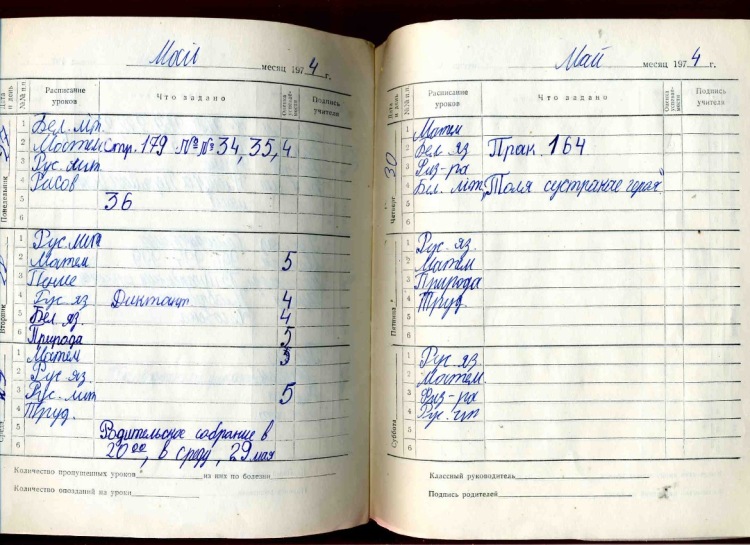 Май месяц 1974 г.
Дата и день №№ п.п. Расписание уроков Что задано Оценка успеваемости Подпись учителя
Понедельник
1 Бел. лит.
2 Матем Стр. 179 №№ 34, 35, 4
3 Рус. лит.
4 Рисов
5 36
6
Вторник
1 Рус. лит
2 Матем 5
3 Пение
4 Рус. яз Диктант 4
5 Бел. яз. 4
6 Природа 5
Среда
1 Матем 5
2 Рус. яз.
3 Рус. лит 5
4 Труд.
5 Родительское собрание в
6 20⁰⁰, в среду, 29 мая
Количество пропущенных уроков из них по болезни
Количество опозданий на уроки
Май месяц 1974 г.
Дата и день №№ п.п. Расписание уроков Что задано Оценка успеваемости Подпись учителя
Четверг 30
1 Матем
2 Бел. яз Прак. 164
3 Физ-ра
4 Бел. лит. „Толя сустракае герая“
5
6
Пятница
1 Рус. яз.
2 Матем
3 Природа
4 Труд.
5
6
Суббота
1 Рус. яз.
2 Матем.
3 Физ-ра
4 Рус.
5
6
Классный руководитель
Подпись родителей